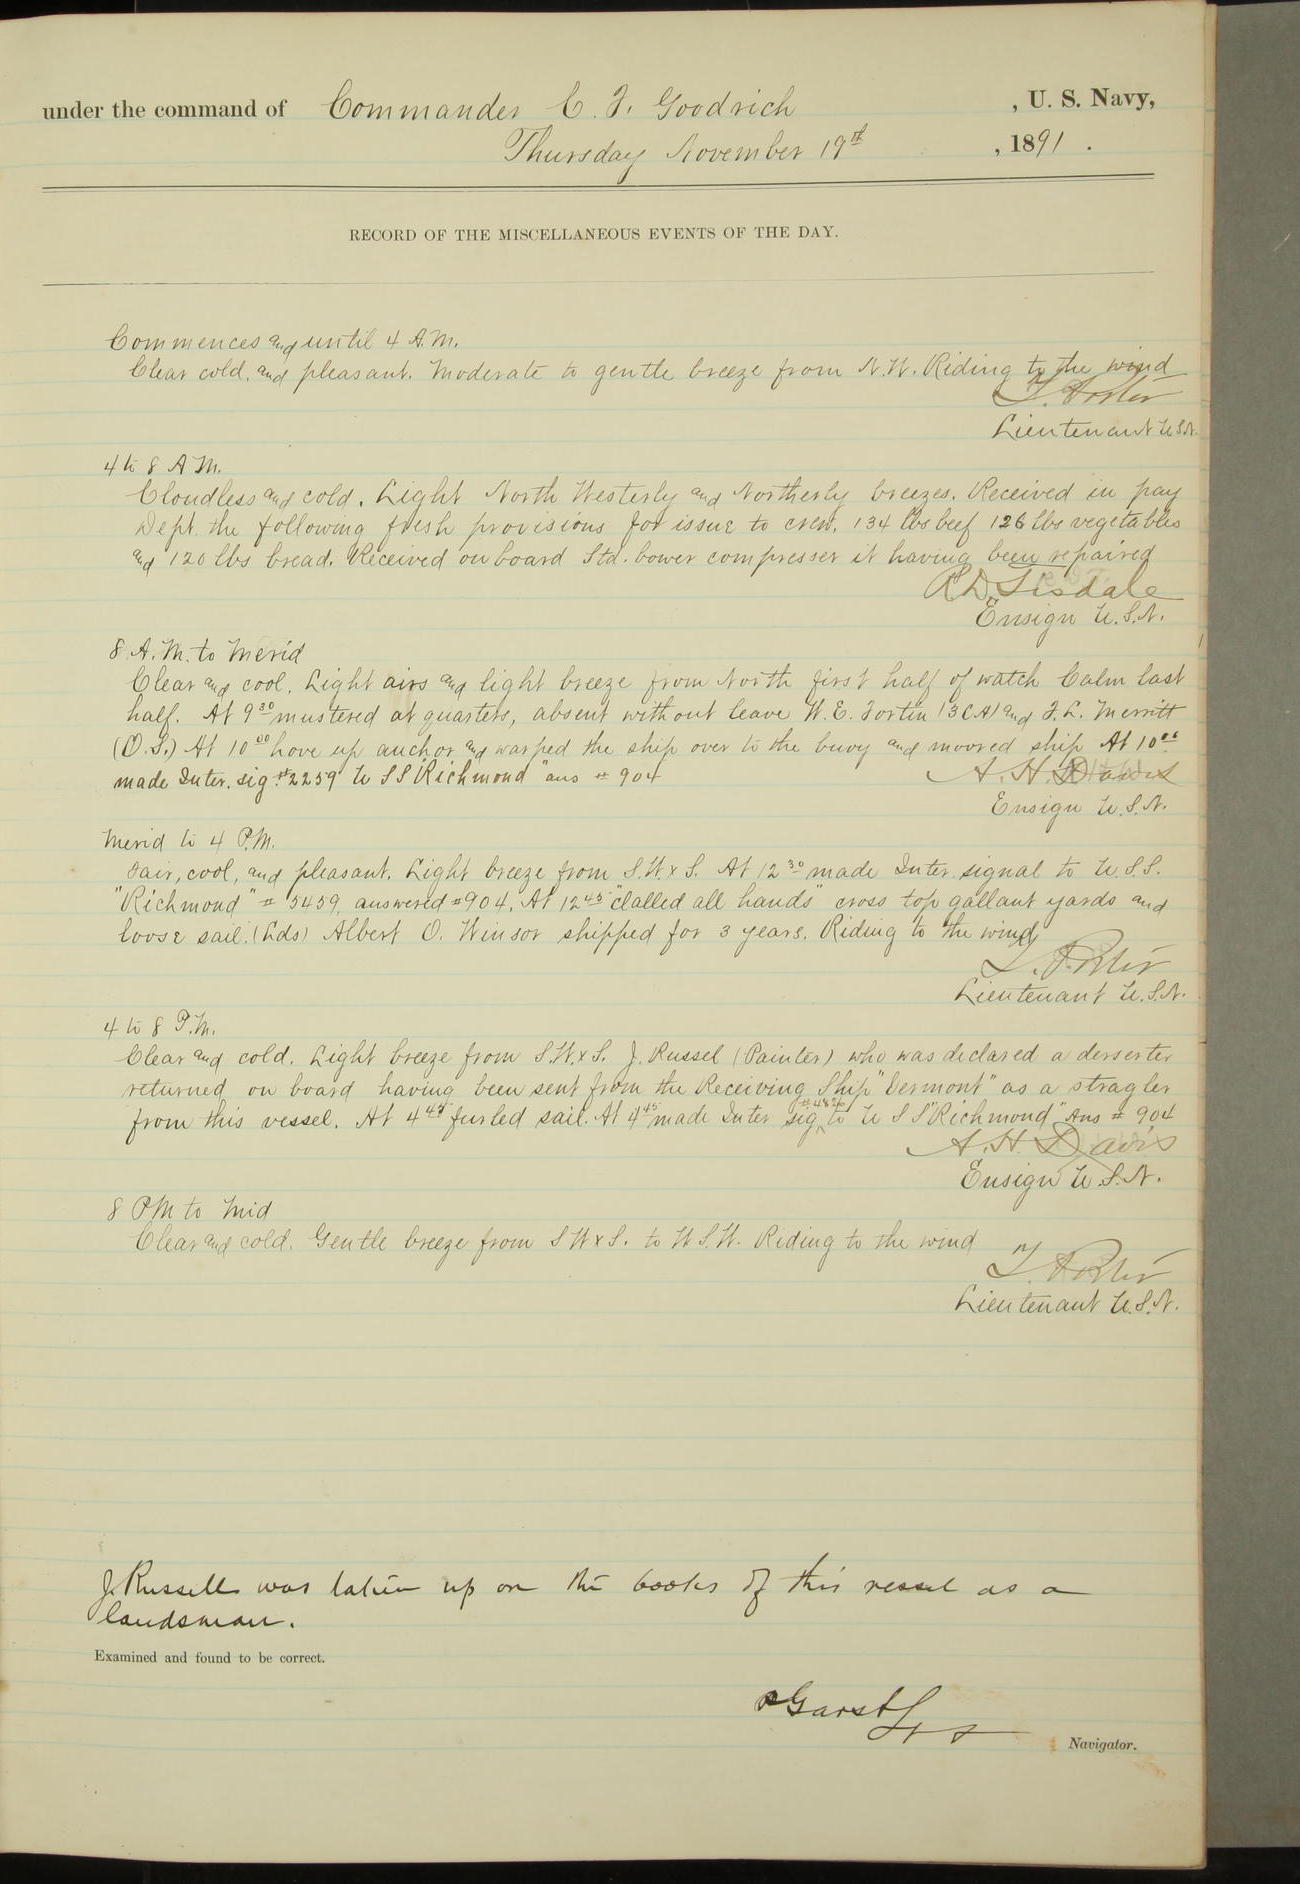 under the command of Commander C. F. Goodrich , U. S. Navy,
Thursday November 19th , 1891 .
RECORD OF THE MISCELLANEOUS EVENTS OF THE DAY.
Commences and until 4 A.M.
Clear cold, and pleasant. Moderate to gentle breeze from N.W. Riding to the wind
T. Porter
Lieutenant U.S.N.
4 to 8 A M.
Cloudless and cold. Light North Westerly and Northerly breezes. Received in pay
Dept. the following fresh provisions for issue to crew. 134 lbs beef 126 lbs vegetables
and 120 lbs bread. Received on board Std. bower compresser it having been repaired
R.D. Tisdale
Ensign U.S.N.
8 A.M. to Merid
Clear and cool. Light airs and light breeze from North first half of watch Calm last
half. At 9 30 mustered at quarters, absent without leave W. E. Fortin (3CA) and F. L. Merritt
(O.S.) At 10 00 hove up anchor and warped the ship over to the buoy and moored ship At 10
made Inter. sig. # 2259 U S S "Richmond" ans # 904
A. H. Davis
Ensign U.S.N.
Merid to 4 P.M.
Fair, cool, and pleasant. Light breeze from S.W. x S. At 12 30 made Inter. signal to U.S.S.
"Richmond" # 5459, answered # 904. At 12 45 "Clalled all hands" cross top gallant yards and
loose sail. (Lds) Albert O. Winsor shipped for 3 years. Riding to the wind
T. Porter
Lieutenant U.S.N.
4 to 8 P.M.
Clear and cold. Light breeze from S.W. x S. J. Russel (Painter) who was declared a derserter
returned on board having been sent from the Receiving Ship "Vermont" as a stragler
from this vessel. At 4 45 furled sail. At 4 45 made Inter sig # 4826 to U S S "Richmond" Ans # 904
A. H. Davis
Ensign U.S.N.
8 PM to Mid
Clear and cold. Gentle breeze from S W x S. to W S.W. Riding to the wind
T. Porter
Lieutenant U.S.N.
J. Russell was taken up on the books of this vessel as a
landsman.
Examined and found to be correct.
P Garst
Navigator.